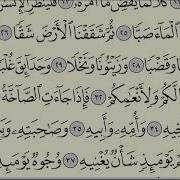 كَلَّا لَمَّا يَقْضِ مَآ أَمَرَهُۥ ٢٣ فَلْيَنظُرِ ٱلْإِنسَ
ٱلْمَآءَ صَبًّا ٢٥ ثُمَّ شَقَقْنَا ٱلْأَرْضَ شَقًّا ٢٦
وَقَضْبًا ٢٨ وَزَيْتُونًا وَنَخْلًا ٢٩ وَحَدَآئِقَ غُلْبًا
لَّكُمْ وَلِأَنْعَٰمِكُمْ ٣٢ فَإِذَا جَآءَتِ ٱلصَّآخَّةُ ٣٣
٣٤ وَأُمِّهِۦ وَأَبِيهِ ٣٥ وَصَٰحِبَتِهِۦ وَبَنِيهِ
يَوْمَئِذٍ شَأْنٌ يُغْنِيهِ ٣٧ وُجُوهٌ يَوْمَئِذٍ